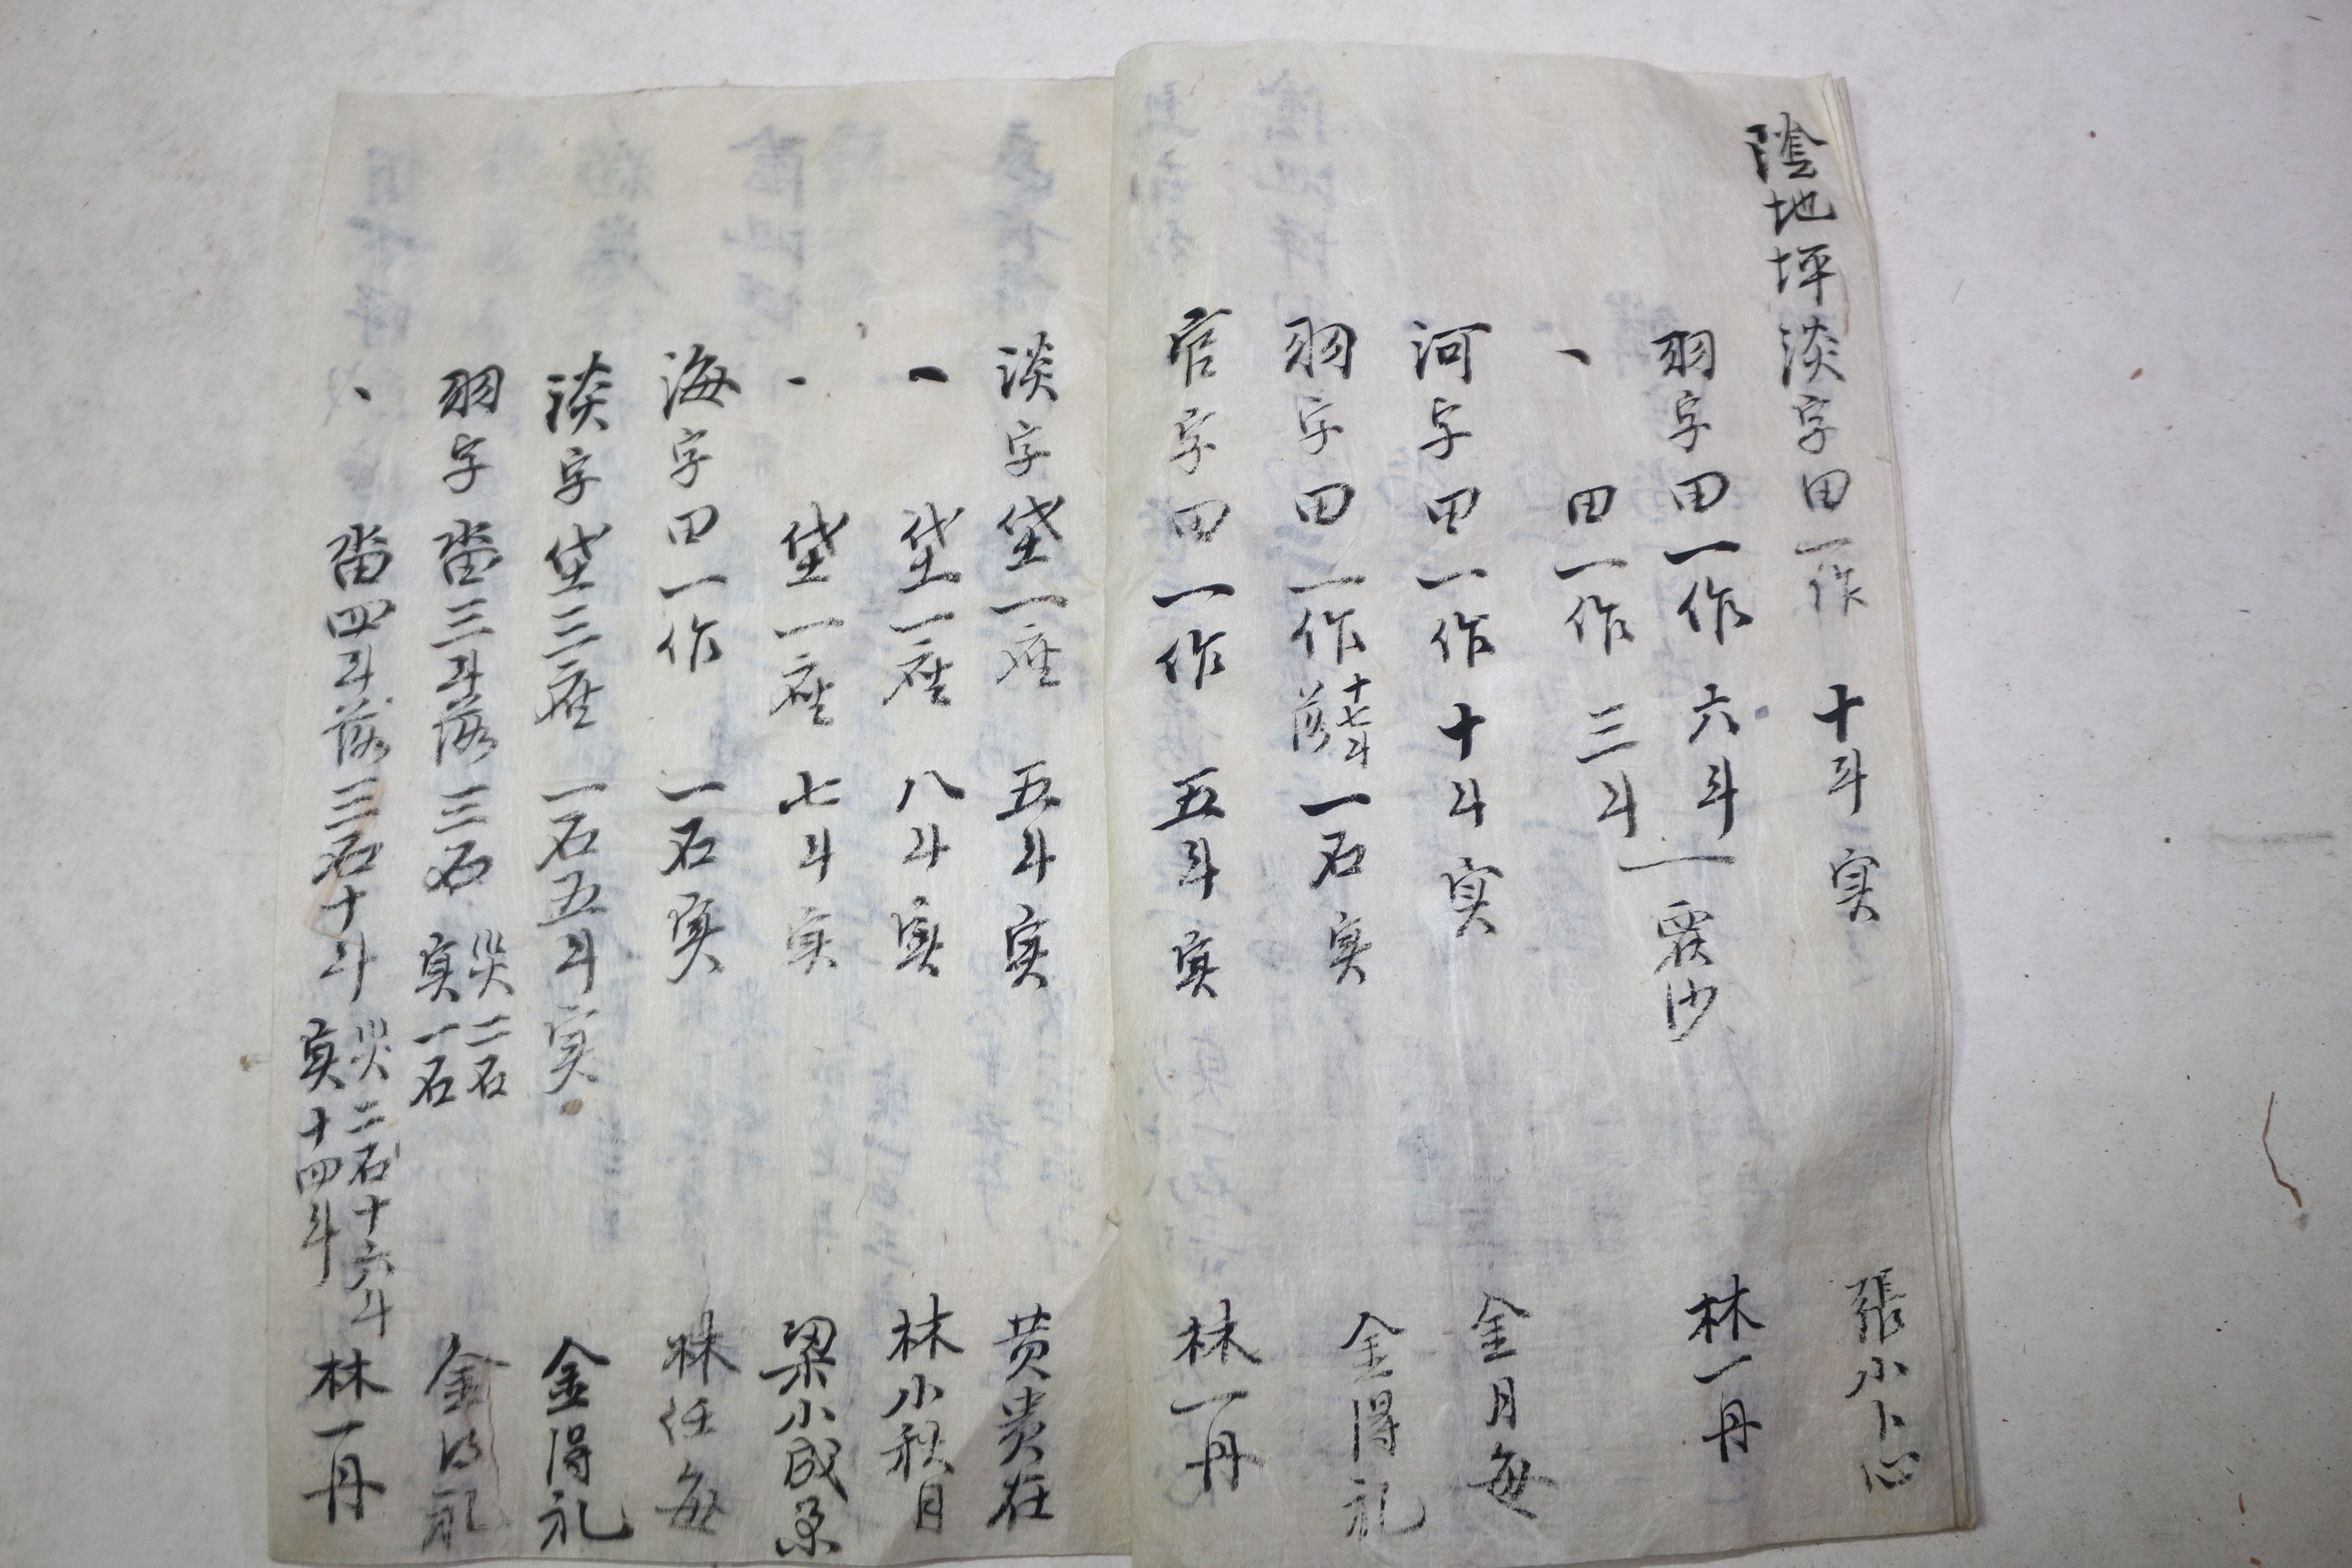 陰地坪 淡字田一作 十斗 実 張小卜心
羽字田一作 六斗 林一丹
、 田一作 三斗 覆沙
河字田一作 十斗 実 金月每
羽字田一作 十七斗落 一石 実 金得礼
官字田一作 五斗 実 林一丹
淡字垈一座 五斗 実 黄貴在
、 垈一座 八斗 実 林小秋月
、 垈一座 七斗 実 梁小成
海字田一作 一石 実 林任每
淡字垈三座 一石五斗 実 金得礼
羽字畓三斗落 三石 災二石 実一石 金得礼
、 畓四斗落 三石十斗 災二石十六斗 実十四斗 林一丹